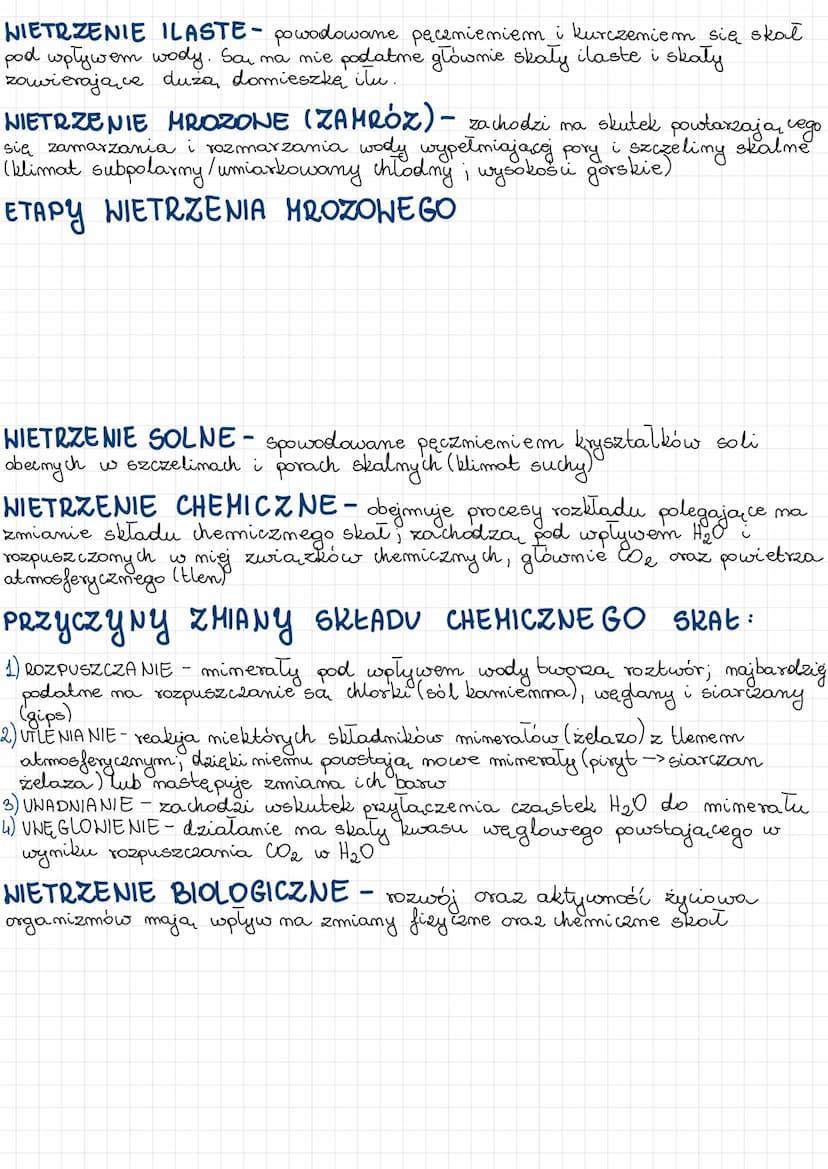 WIETRZENIE ILASTE - powodowane pęcznieniem i kurczeniem się skał
pod wpływem wody. Są na nie podatne głównie skały ilaste i skały
zawierające dużą domieszkę iłu.
WIETRZENIE MROZOWE (ZAMRÓZ) - zachodzi na skutek powtarzającego
się zamarzania i rozmarzania wody wypełniającej pory i szczeliny skalne
(klimat subpolarny/umiarkowany chłodny; wysokości górskie)
ETAPY WIETRZENIA MROZOWEGO
WIETRZENIE SOLNE - spowodowane pęcznieniem kryształków soli
obecnych w szczelinach i porach skalnych (klimat suchy)
WIETRZENIE CHEMICZNE - obejmuje procesy rozkładu polegające na
zmianie składu chemicznego skał; zachodzą pod wpływem H₂O i
rozpuszczonych w niej związków chemicznych, głównie CO₂ oraz powietrza
atmosferycznego (tlen)
PRZYCZYNY ZMIANY SKŁADU CHEMICZNEGO SKAŁ:
1) ROZPUSZCZANIE - minerały pod wpływem wody tworzą roztwór; najbardziej
podatne na rozpuszczanie są chlorki (sól kamienna), węglany i siarczany
(gips)
2) UTLENIANIE - reakcja niektórych składników minerałów (żelazo) z tlenem
atmosferycznym; dzięki niemu powstają nowe minerały (piryt → siarczan
żelaza) lub następuje zmiana ich barw
3) UWADNIANIE - zachodzi wskutek przyłączenia cząstek H₂O do minerału
4) UWĘGLOWIENIE - działanie na skały kwasu węglowego powstającego w
wyniku rozpuszczania CO₂ w H₂O
WIETRZENIE BIOLOGICZNE - rozwój oraz aktywność życiowa
organizmów mają wpływ na zmiany fizyczne oraz chemiczne skał